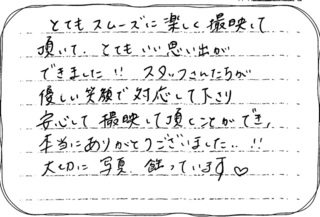 とてもスムーズに楽しく撮映して
頂いて、とてもいい思い出が
できました!! スタッフさんたちが
優しい笑顔で対応して下さり
安心して撮映して頂くことができ、
本当にありがとうございました..!!
大切に写真飾っています♡